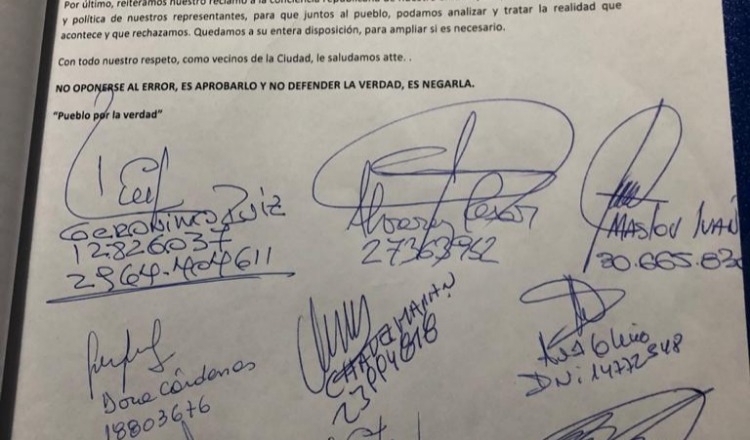 Por último, reiteramos nuestro reclamo a la conciencia republicana
y política de nuestros representantes, para que juntos al pueblo, podamos analizar y tratar la realidad que
acontece y que rechazamos. Quedamos a su entera disposición, para ampliar si es necesario.
Con todo nuestro respeto, como vecinos de la Ciudad, le saludamos atte. .
NO OPONERSE AL ERROR, ES APROBARLO Y NO DEFENDER LA VERDAD, ES NEGARLA.
"Pueblo por la verdad"
GERONIMO RUIZ
12.826.037
2964-404611
Alvarez
27363952
MASLOV IVAN
30.665.830
Dora Cárdenas
18803676
23004818
DNi: 14772548